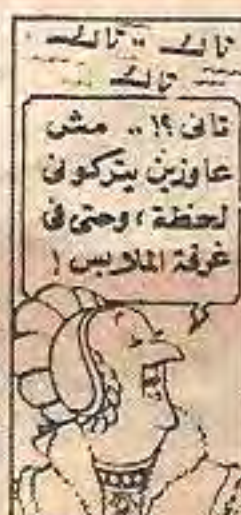 تالى .. تالى
تالى
تانى ؟! .. مش
عاوزين يتركونى
لحظة ، وحتى فى
غرفة الملابس !